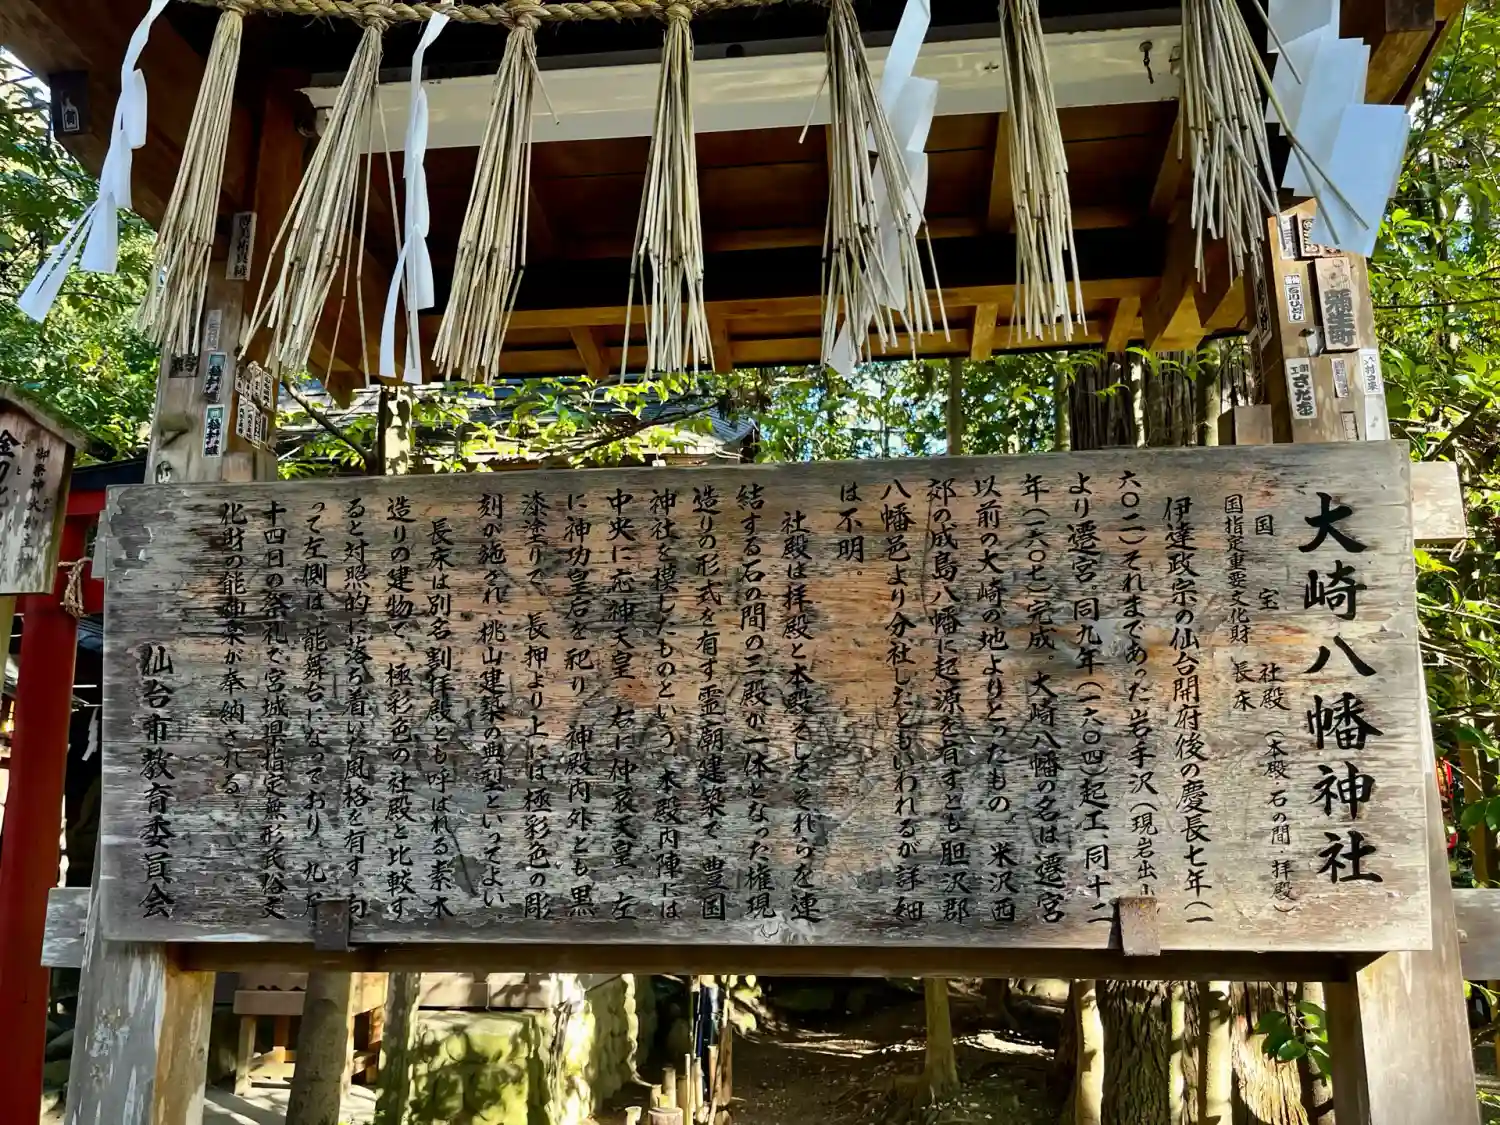 大崎八幡神社
国宝 社殿(本殿 石の間 拝殿)
国指定重要文化財 長床
伊達政宗の仙台開府後の慶長七年(一
六〇二)それまであった岩手沢(現岩出山
より遷宮、同九年(一六〇四)起工、同十二
年(一六〇七)完成。大崎八幡の名は遷宮
以前の大崎の地よりとったもの。米沢西
郊の成島八幡に起源を有すとも胆沢郡
八幡邑より分社したともいわれるが詳細
は不明。
社殿は拝殿と本殿をしてそれらを連
結する石の間の三殿が一体となった権現
造りの形式を有す霊廟建築で、豊国
神社を模したものという。本殿内陣には
中央に応神天皇、右に仲哀天皇、左
に神功皇后を祀り、神殿内外とも黒
漆塗りで、長押より上には極彩色の彫
刻が施され、桃山建築の典型といってよい。
長床は別名割拝殿とも呼ばれる素木
造りの建物で、極彩色の社殿と比較す
ると対照的に落ち着いた風格を有す。向
って左側は、能舞台になっており、九月
十四日の祭礼で宮城県指定無形民俗文
化財の能神楽が奉納される。
仙台市教育委員会
石川ひとし
さだな